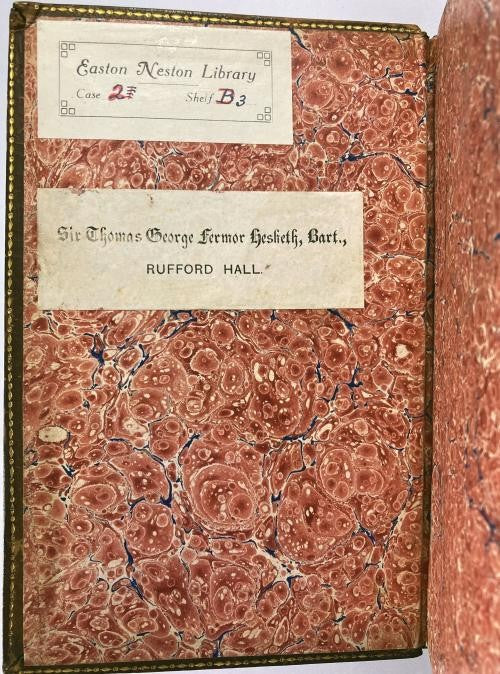 Easton Neston Library
Case 2 Shelf B3
Sir Thomas George Fermor Hesketh, Bart.,
RUFFORD HALL.